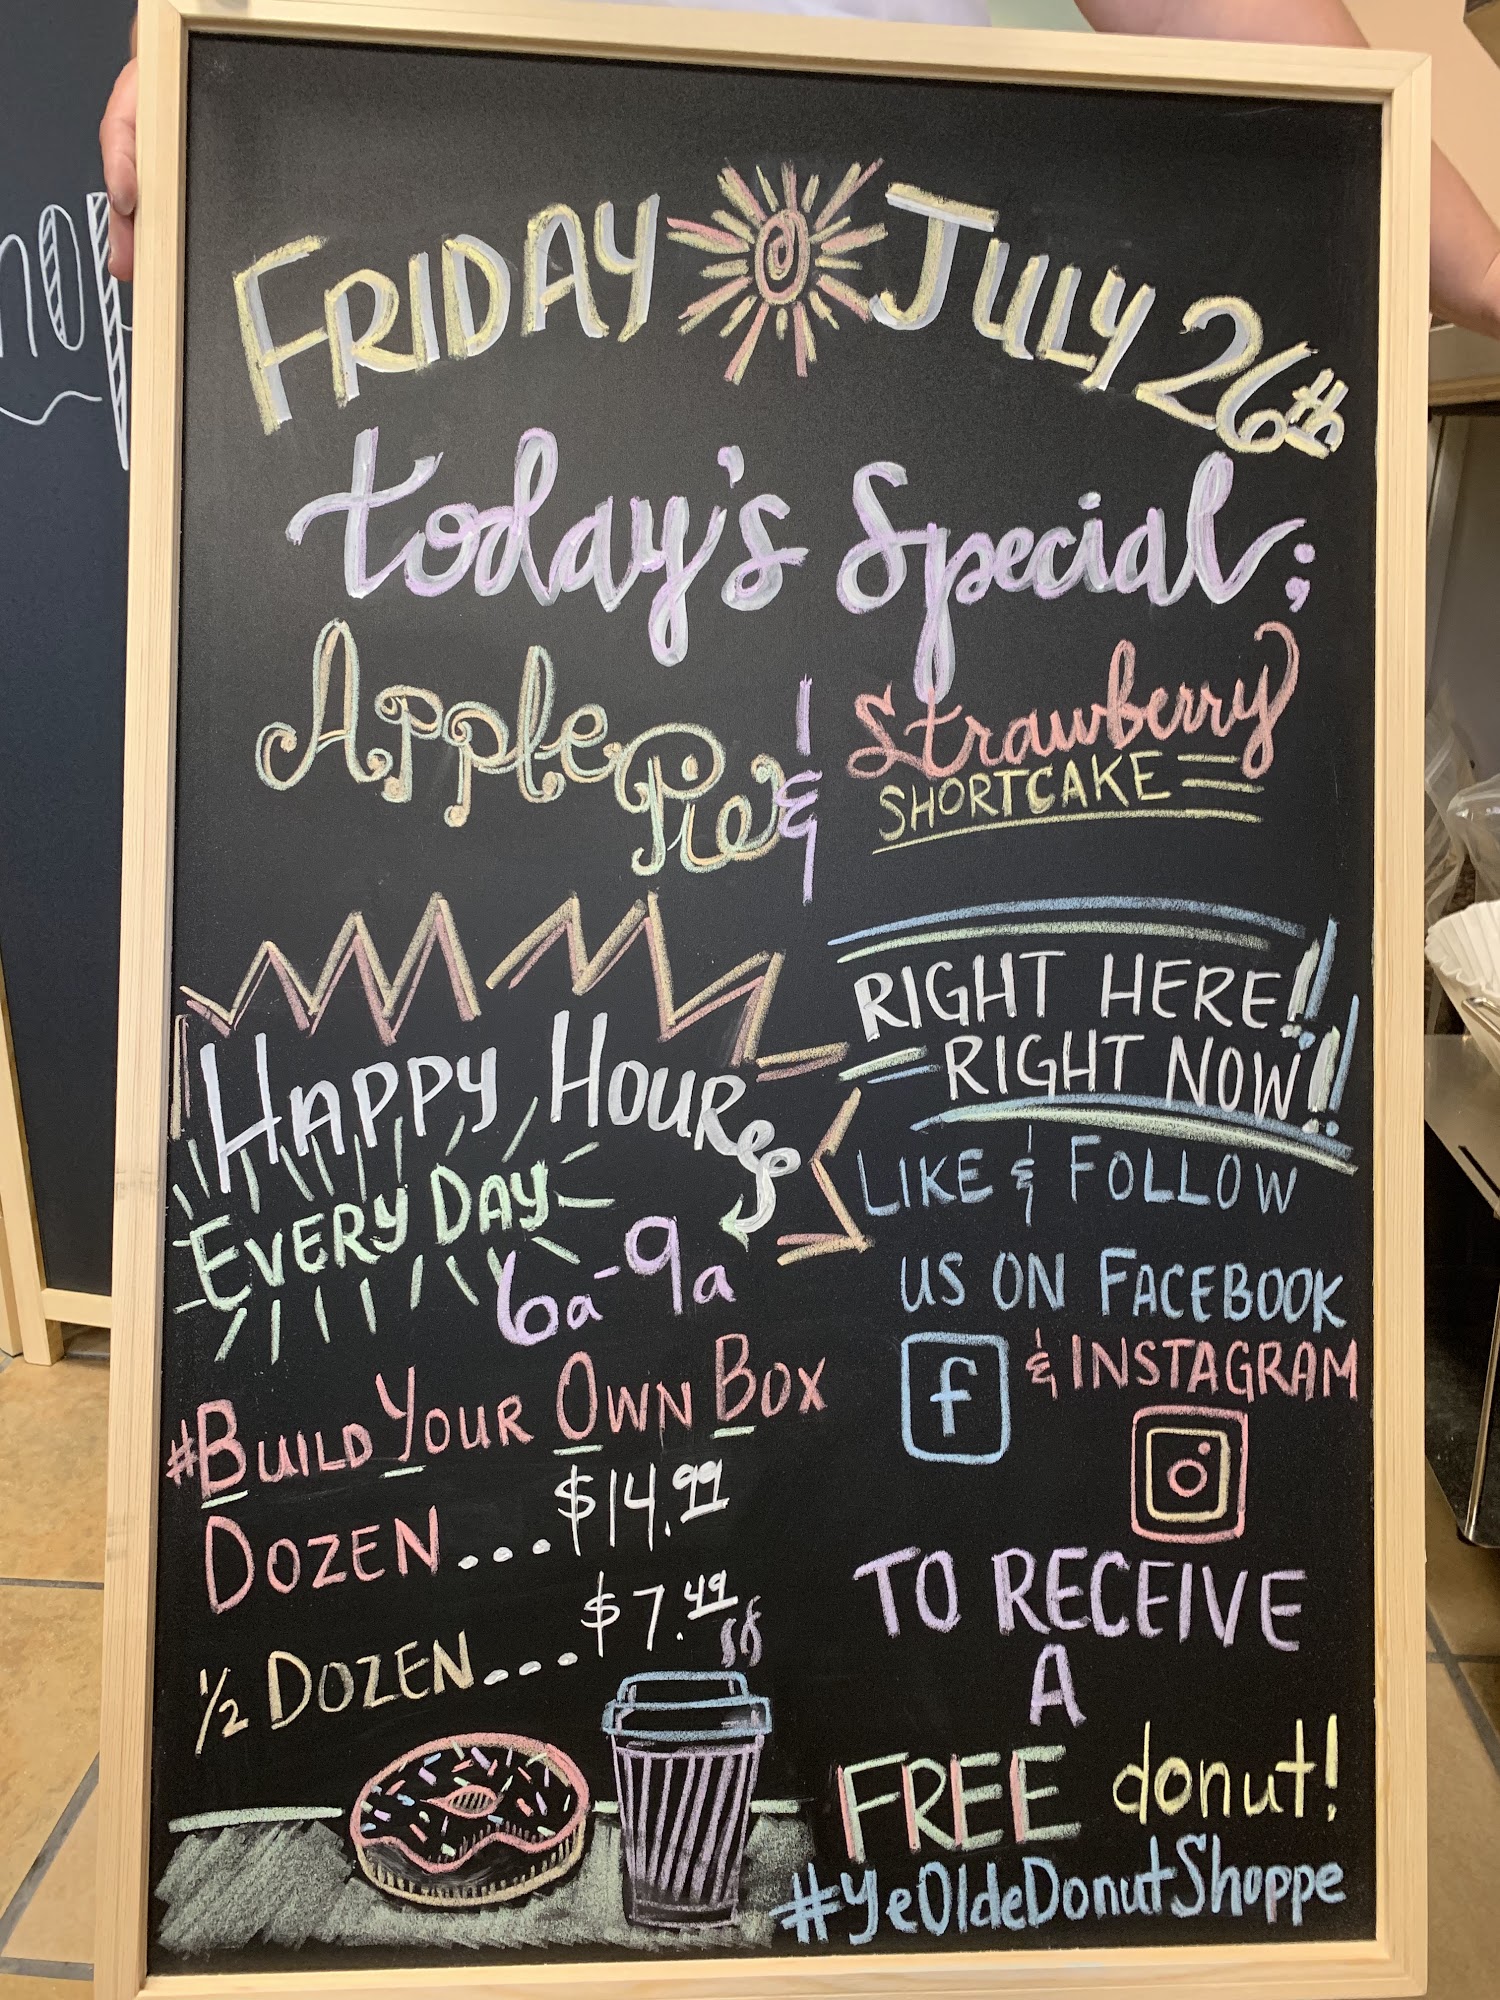 FRIDAY JULY 26th
Today's Special;
Apple Pie & Strawberry
SHORTCAKE
HAPPY HOUR
EVERY DAY
6a-9a
#BUILD YOUR OWN BOX
DOZEN...$14.99
1/2 DOZEN....$7.49
RIGHT HERE!!
RIGHT NOW!!
LIKE & FOLLOW
US ON FACEBOOK
f & INSTAGRAM
TO RECEIVE
A
FREE donut!
#YeOldeDonutShoppe